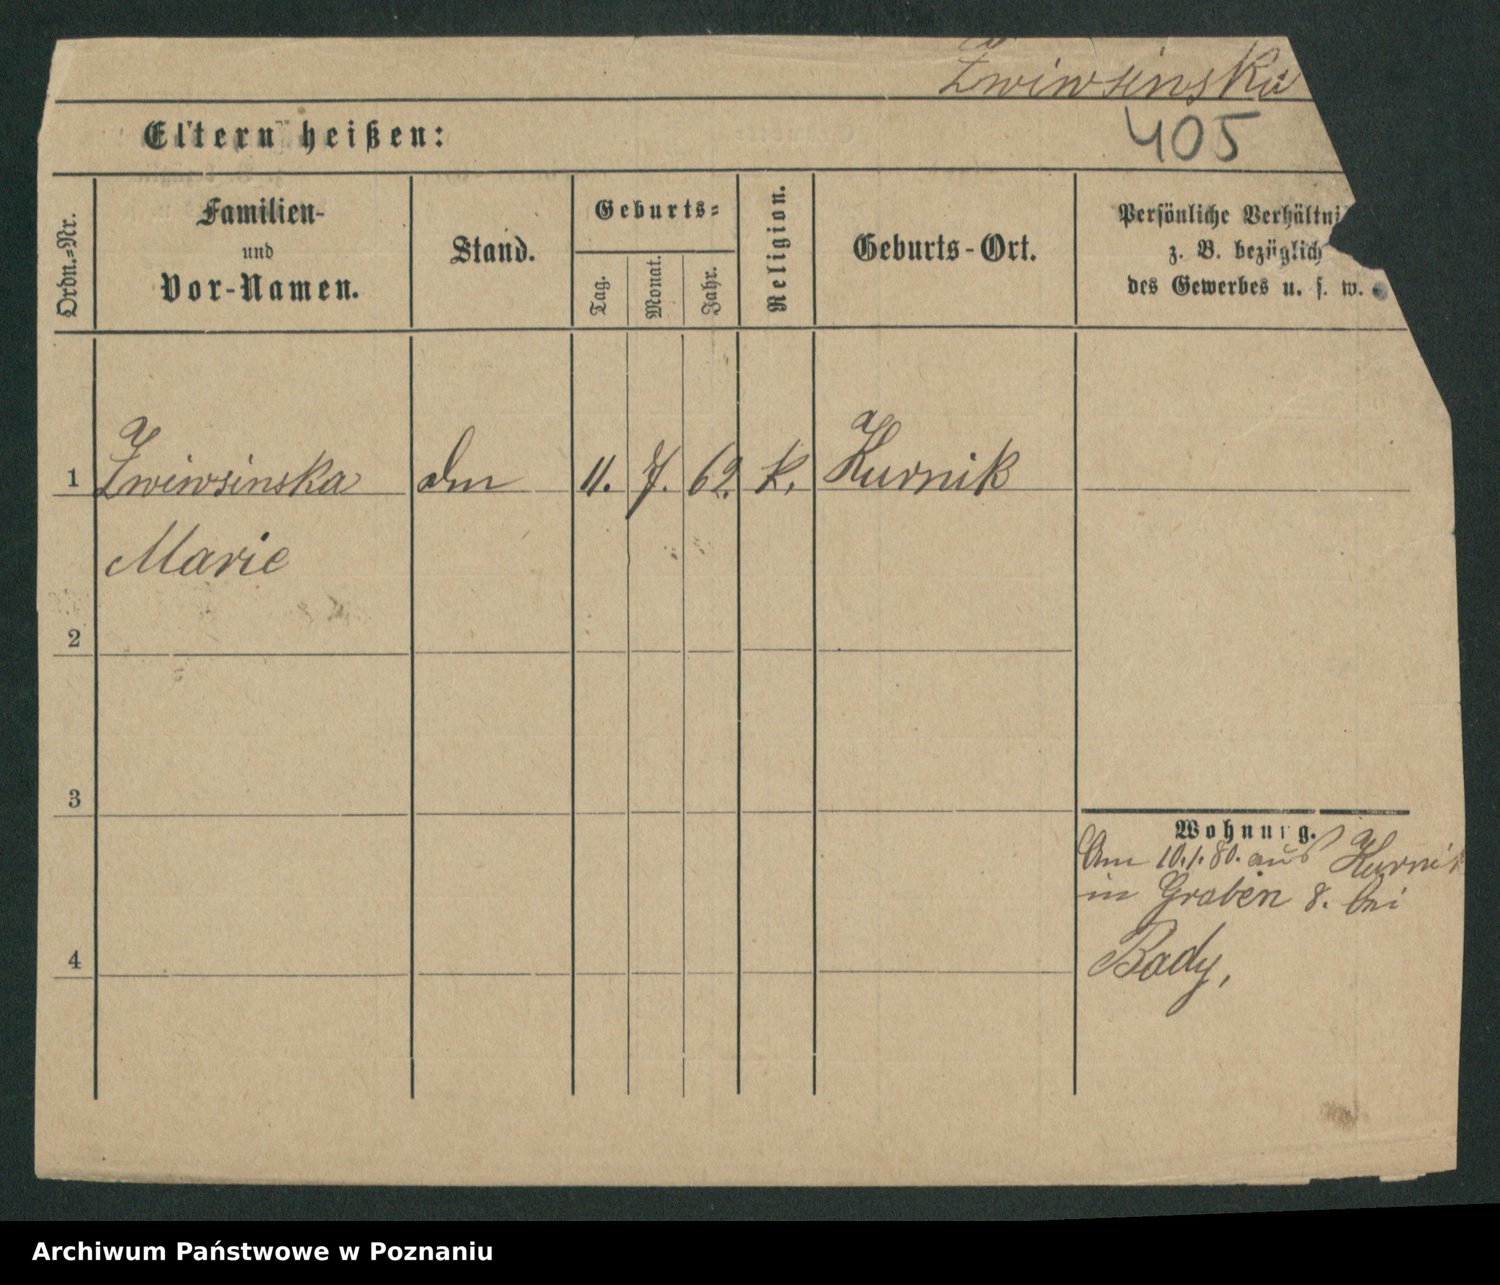 Zwiwsinska
405
Eltern heißen:
Ordn.-Nr.
Familien-
und
Vor-Namen.
Stand.
Geburts-
Tag.
Monat.
Jahr.
Religion.
Geburts-Ort.
Persönliche Verhältni
z. B. bezüglich
des Gewerbes u. s. w.
1 Zwiwsinska 11. 7. 62. k. Kurnik
Marie
2
3
Wohnung.
Am 10.1.80. aus Kurnik
in Graben 8. bei
4
Bady,
Archiwum Państwowe w Poznaniu